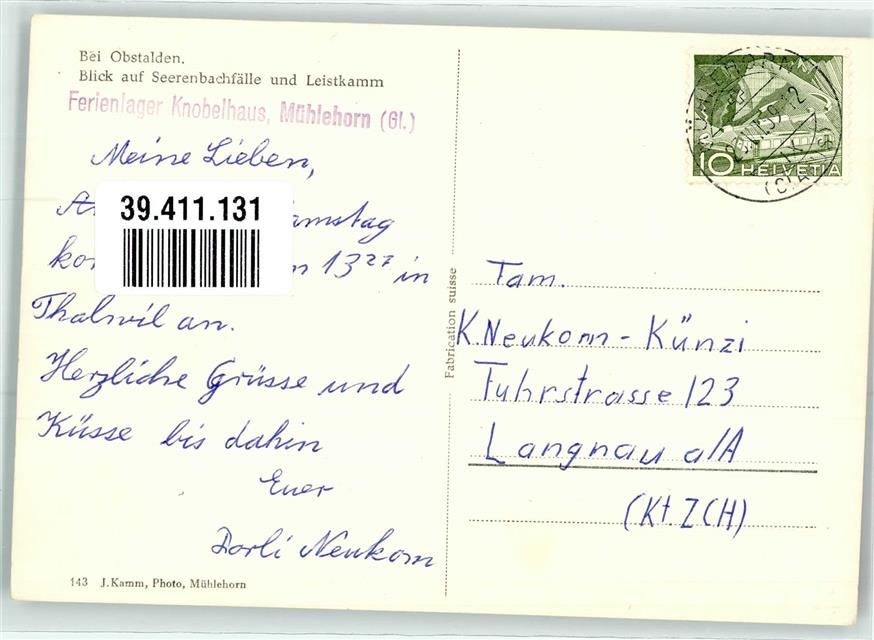 Bei Obstalden.
Blick auf Seerenbachfälle und Leistkamm
Ferienlager Knobelhaus, Mühlehorn (Gl.)
Meine Lieben,
39.411.131
amstag
13²⁷ in
Thalwil an.
Herzliche Grüsse und
Küsse bis dahin
Euer
Dorli Neukom
143 J. Kamm, Photo, Mühlehorn
Fabrication suisse
10 HELVETIA
Fam.
K. Neukom-Künzi
Fuhrstrasse 123
Langnau a/A
(Kt. ZCH)